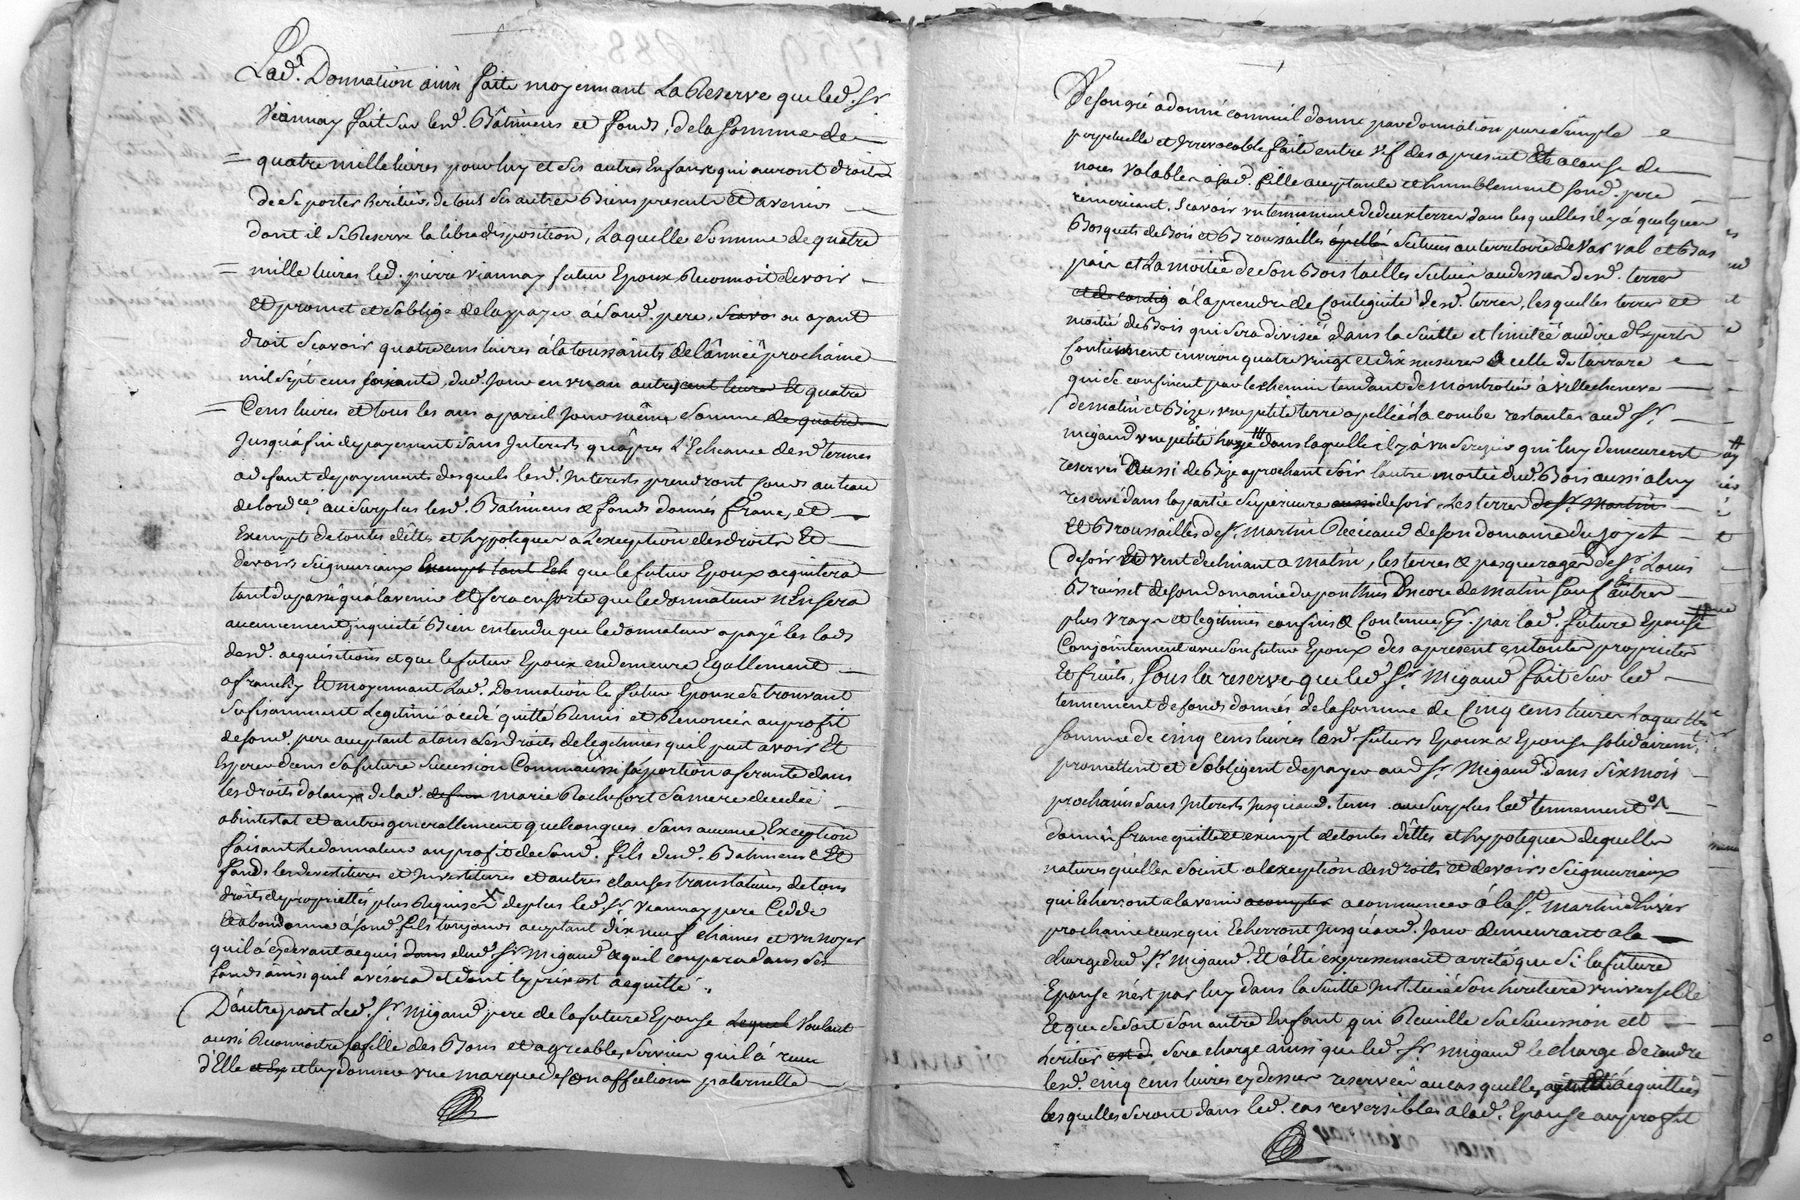 Lad.e Donnation ainsi faite moyennant La Reserve que led. Sr
Viannay fait sur lesd. Batimens et fonds, de la somme de
quatre mille livres pour luy et ses autres Enfans qui auront droit
de se porter heritiers de tous ses autres Biens presents et avenirs
dont il se Reserve la libre disposition, Laquelle Somme de quatre
mille livres led. pierre viannay futur Epoux Reconnoit devoir
et promet et s'oblige de la payer a sond. pere, ou ayant
droit Scavoir quatre cens livres a la toussaints de l'année prochaine
mil sept cens soixante, dud. Jour en un an autres cent livres Et quatre
Cens livres et tous les ans a pareil Jour même Somme de quatre
Jusqu'a fin de payement Sans Interests qu'apres L'Echeance desd. termes
a deffaut de payements desquels lesd. Interests prendront cours au taux
de lordce. au Surplus lesd. Batimens & fonds donnés francs, et
Exempts de toutes dettes et hypoteques a Lexception des droits Et
devoirs Seigneuriaux que le futur Epoux acquitera
tant du passé qu'a lavenir Et fera en sorte que le donnateur n'En sera
aucunement inquieté Bien entendu que le donnateur a payé les lods
desd. acquisitions et que le futur Epoux en demeure Egallement
afranchy Et moyennant Lad. Donnation le futur Epoux se trouvant
Sufisamment Legitimé a cedé quitté Remis et Renoncé au profit
de sond. pere acceptant a tous Les droits de legitimes qu'il peut avoir Et
Esperer dans sa future Sucession Comme aussi sa portion aferante dans
les droits dotaux de lad. marie Rochefort sa mere decedée
abintestat et autres generallement quelconques Sans aucune Exception
faisant Le donnateur au profit de Sond. fils desd. Batimens Et
fonds les devestitures et Investitures et autres clauses translatives de tous
droits de proprietés plus Requises de plus led. Sr Viannay pere Cedde
et abandonne a Sond. fils toujours aceptant dix neuf chaines et un noyer
qu'il a cy devant acquis dans dud. Sr Migaud & qu'il coupera dans ses
fonds ainsi quil avisera et dont le prix est acquitté.
D'autre part Led. Sr. Migaud pere de la future Epouse Lequel Voulant
aussi Reconnoitre sa fille des Bons et agreables services qu'il a recu
d'Elle et luy donner une marque de son affection paternelle
De son gré a donné comme il donne par donnation pure simple
perpetuelle et Irrevocable faite entre vifs des apresent Et a cause de
noces Valable a sad. fille aceptante et humblement sond. pere
remerciant. Scavoir un tennement de deux terres dans lesquelles il y a quelques
Bosquets de Bois et Broussailles Situés au territoire de Var val et Bas
pais et La moitié de son Bois taillis Situé au dessus desd. terres
a la prendre de Contiguité desd. terres, lesquelles terres et
moitié de Bois qui sera divisée dans la suitte et limitée au dire d'Experts
Contiennent environ quatre vingt et dix mesures a celle de tarrare
qui se confinent par le chemin tendant de Montrotier a Villecheneve
de matin et Bize, une petite terre appellée La combe restante aud. Sr.
migaud une petite haye dans laquelle il y a un Serizier qui luy demeurent
reservés Aussi de Bize aprochant soir l'autre moitié dud. Bois aussi a luy
reservé dans la partie Superieure de soir Les terres de Sr. Martin
Et Broussailles de Sr. Martin de son domaine du Joyet
de soir Et Vent declinant a matin, les terres & pasquerages de Sr. Louis
Braisset de son domaine du Encore de matin sauf autres
plus vrays et legitimes confins & Contenue, par lad. future Epouse
Conjointement avec son futur Epoux des apresent en toutes proprietés
Et fruits, Sous la reserve que led. Sr Migaud fait sur led
tennement de fonds donnés de la somme de Cinq cens livres Laquelle
somme de cinq cens livres lesd. futurs Epoux & Epouse solidairemt.
promettent et s'obligent de payer aud. Sr. Migaud dans Six mois
prochains sans Interests Jusqu'aud. tems au surplus led. tennement
donné franc quitte et exempt de toutes dettes et hypoteques de quelles
natures quelles soient a lexception des droits et devoirs Seigneuriaux
qui Echerront a lavenir a commencer a la St. Martin d'hiver
prochaine ceux qui Echerront Jusqu'aud. Jour demeurant a la
charge dud. Sr. Migaud. Et a été expressement arreté que Si la future
Epouse n'est pas luy dans la suitte Instituée Son heritiere universelle
Et que se soit son autre Enfant qui Recuille sa Sucession cet
heritier sera charge ainsi que led. Sr Migaud le charge de rendre
lesd. cinq cens livres cy dessus reservées au cas quelles acquittées
lesquelles seront dans led. cas reversibles a lad. Epouse au profit